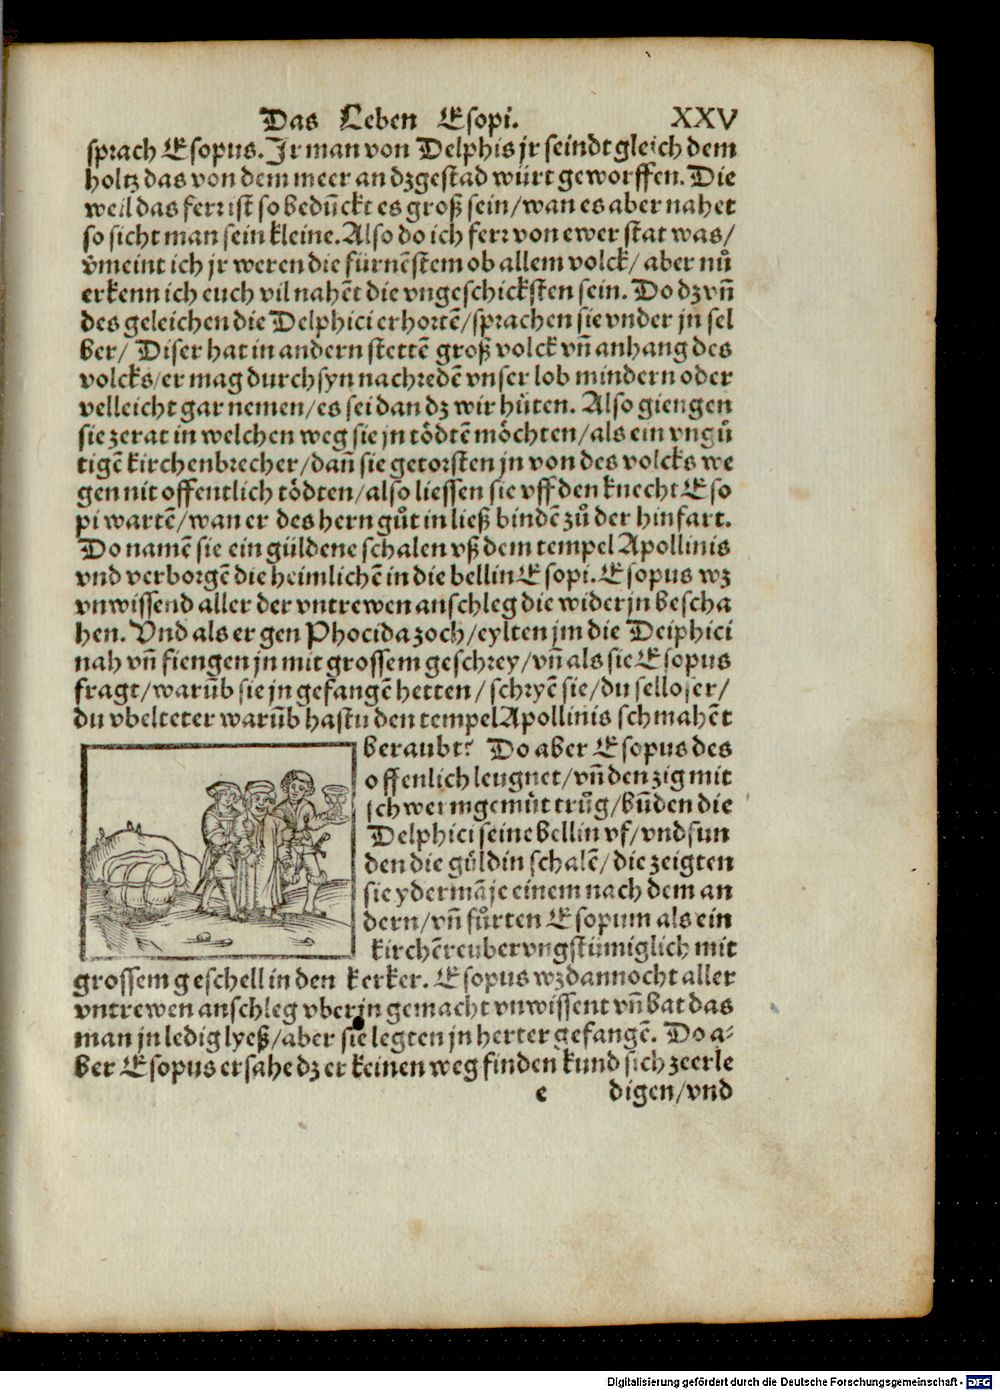 Das Leben Esopi. XXV
sprach Esopus. Jr man von Delphis jr seindt gleich dem
holtz das von dem meer an dz gestad würt geworffen. Die
weil das ferr ist so bedūckt es groß sein/ wan es aber nahet
so sicht man sein kleine. Also do ich ferr von ewer stat was/
v̄meint ich jr weren die fürnēstem ob allem volck/ aber nů
erkenn ich euch vil nahēt die vngeschicksten sein. Do dz vn̄
des geleichen die Delphici erhortē/ sprachen sie vnder jn sel
ber/ Diser hat in andern stettē groß volck vn̄ anhang des
volcks/ er mag durch syn nachredē vnser lob mindern oder
velleicht gar nemen/ es sei dan dz wir hüten. Also giengen
sie ze rat in welchen weg sie jn tödtē möchten/ als ein vngů
tigē kirchenbrecher/ dan̄ sie getorsten jn von des volcks we
gen nit offentlich tödten/ also liessen sie vff den knecht Eso
pi wartē/ wan er des hern gůt in ließ bindē zů der hinfart.
Do namē sie ein güldene schalen vß dem tempel Apollinis
vnd verborgē die heimlichē in die bellin Esopi. Esopus wz
vnwissend aller der vntrewen anschleg die wider jn bescha
hen. Vnd als er gen Phocida zoch/ eylten jm die Delphici
nah vn̄ fiengen jn mit grossem geschrey/ vn̄ als sie Esopus
fragt/ warūb sie jn gefangē hetten/ schryē sie/ duselloser/
du vbelteter warūb hastu den tempel Apollinis schmahēt
beraubt? Do aber Esopus des
offenlich leugnet/ vn̄ den zig mit
schwerm gemüt trůg/ būden die
Delphici seine bellin vf/ vnd fun
den die güldin schalē/ die zeigten
sie ydermā je einem nach dem an
dern/ vn̄ fůrten Esopum als ein
kirchēreuber vngstümiglich mit
grossem geschell in den kerker. Esopus wz dannocht aller
vntrewen anschleg vber jn gemacht vnwissent vn̄ bat das
man jn ledig lyeß/ aber sie legten jn herter gefangē. Do a⸗
ber Esopus ersahe dz er keinen weg finden kund sich ze erle
e digen/ vnd
Digitalisierung gefördert durch die Deutsche Forschungsgemeinschaft - DFG